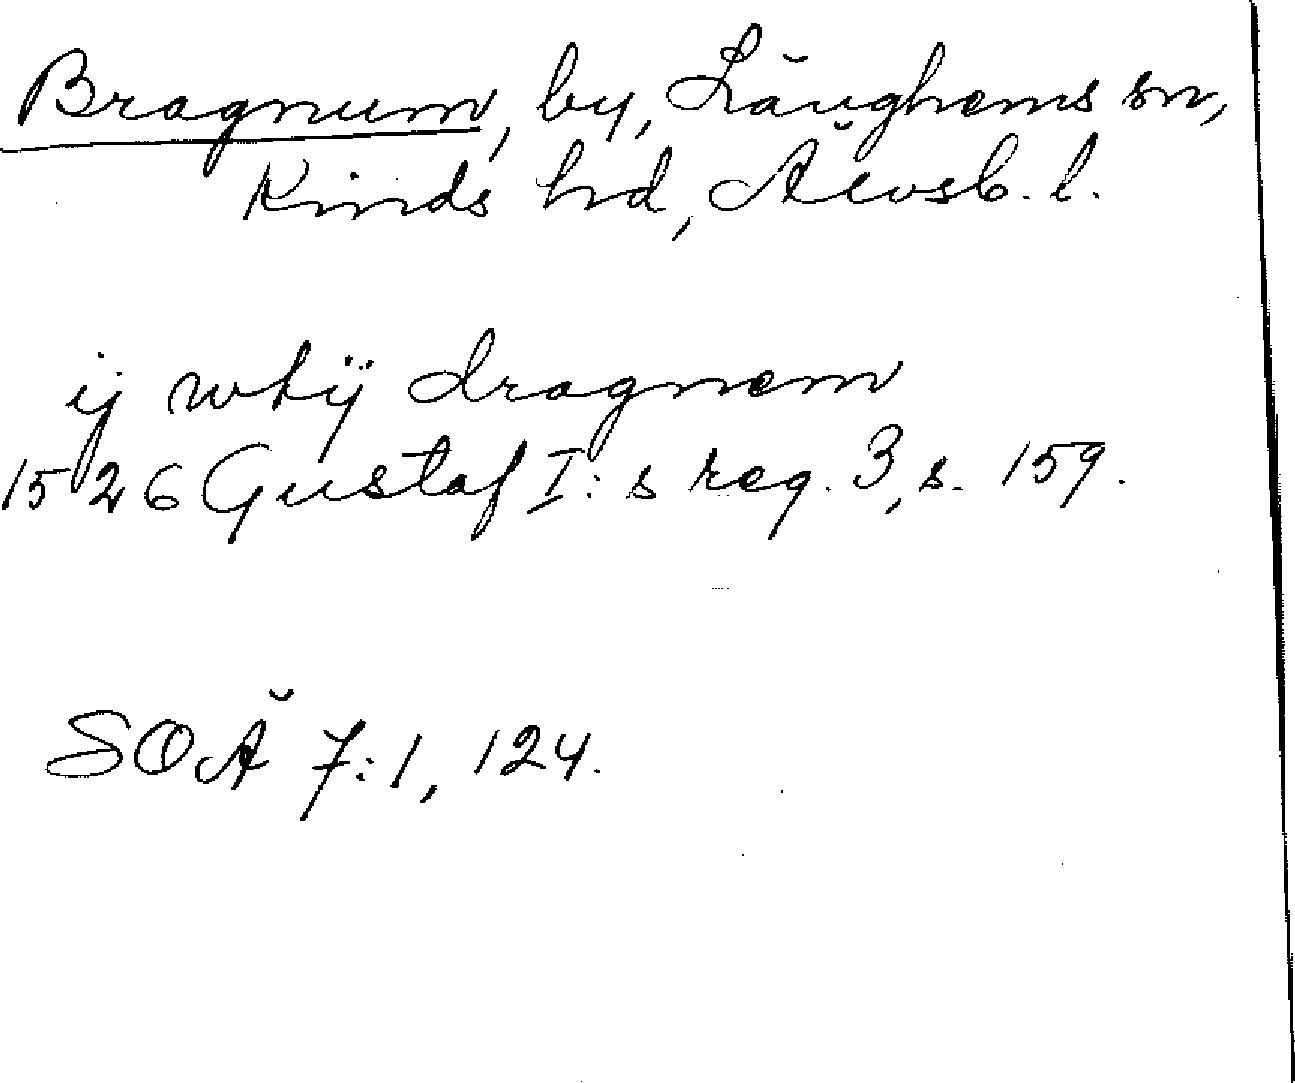 Bragnum, by, Länghems sn,
Kinds hd, Älvsb. l.
ij whij dragnem
1526 Gustaf I:s reg. 3, s. 159.
SOÄ 7:1, 124.